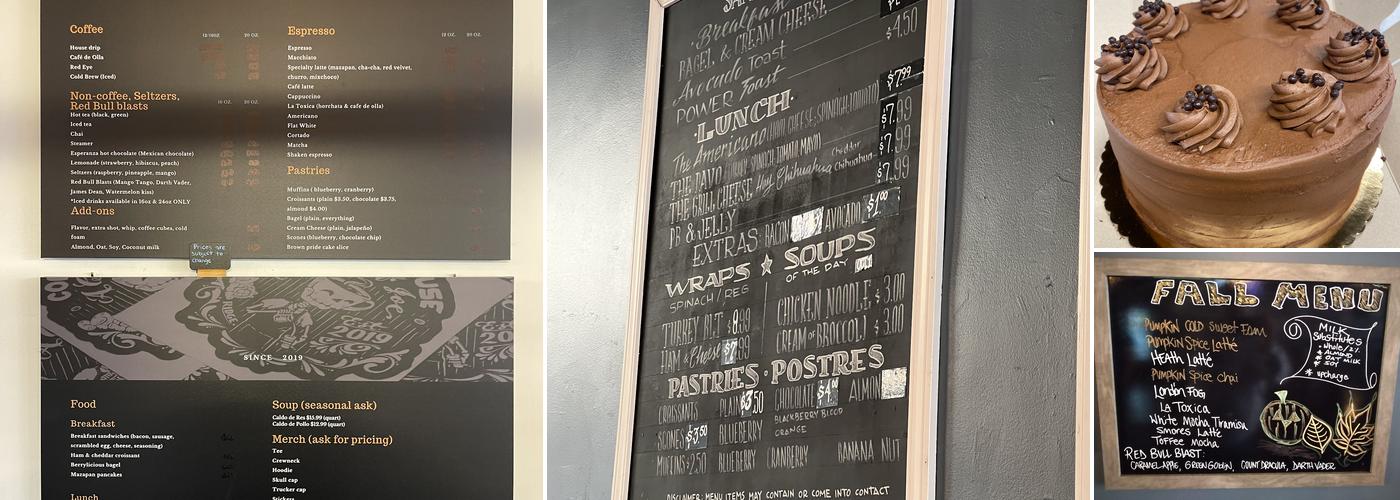 Coffee
12/16OZ. 20 OZ.
House drip
Café de Olla
Red Eye
Cold Brew (Iced)
Non-coffee, Seltzers,
Red Bull blasts
16 OZ. 20 OZ.
Hot tea (black, green)
Iced tea
Chai
Steamer
Esperanza hot chocolate (Mexican chocolate)
Lemonade (strawberry, hibiscus, peach)
Seltzers (raspberry, pineapple, mango)
Red Bull Blasts (Mango Tango, Darth Vader,
James Dean, Watermelon kiss)
*Iced drinks available in 16oz & 24oz ONLY
Add-ons
Flavor, extra shot, whip, coffee cubes, cold
foam
Almond, Oat, Soy, Coconut milk
Espresso
12 OZ. 20 OZ.
Espresso
Macchiato
Specialty latte (mazapan, cha-cha, red velvet,
churro, mixchoco)
Café latte
Cappuccino
La Toxica (horchata & cafe de olla)
Americano
Flat White
Cortado
Matcha
Shaken espresso
Pastries
Muffins ( blueberry, cranberry)
Croissants (plain $3.50, chocolate $3.75,
almond $4.00)
Bagel (plain, everything)
Cream Cheese (plain, jalapeño)
Scones (blueberry, chocolate chip)
Brown pride cake slice
Prices are
subject to
change
SINCE 2019
Food
Breakfast
Breakfast sandwiches (bacon, sausage,
scrambled egg, cheese, seasoning)
Ham & cheddar croissant
Berrylicious bagel
Mazapan pancakes
Lunch
Soup (seasonal ask)
Caldo de Res $15.99 (quart)
Caldo de Pollo $12.99 (quart)
Merch (ask for pricing)
Tee
Crewneck
Hoodie
Skull cap
Trucker cap
Stickers
Breakfast
BAGEL & CREAM CHEESE $4.50
Avocado Toast
POWER Toast $7.99
LUNCH
The Americana (HAM, CHEESE, SPINACH, TOMATO) $7.99
THE PAVO (TURKEY, SPINACH, TOMATO, MAYO) $7.99
THE GRILL CHEESE Cheddar Chihuahua $7.99
PB & JELLY
EXTRAS: BACON AVOCADO $1.00
WRAPS ★ SOUPS
SPINACH / REG OF THE DAY
TURKEY BLT $8.99 CHICKEN NOODLE $3.00
HAM & Cheese $7.99 CREAM OF BROCCOLI $3.00
PASTRIES · POSTRES
CROISSANTS PLAIN $3.50 CHOCOLATE $4.00 ALMOND
SCONES $3.50 BLUEBERRY BLACKBERRY BLOOD ORANGE
MUFFINS $2.50 BLUEBERRY CRANBERRY BANANA NUT
DISCLAIMER: MENU ITEMS MAY CONTAIN OR COME INTO CONTACT
FALL MENU
PUMPKIN COLD Sweet Foam
PUMPKIN Spice Latté
HEATH Latté
PUMPKIN Spice chai
London FOG
La TOXICA
White Mocha Tiramisu
Smores Latté
TOFFEE MOCHA
RED BULL BLAST:
CARAMEL APPLE, GREEN GOBLIN, COUNT DRACULA, DARTH VADER
MILK
Substitutes
• Whole/2%
* ALMOND
* OAT MILK
* SOY
* upcharge